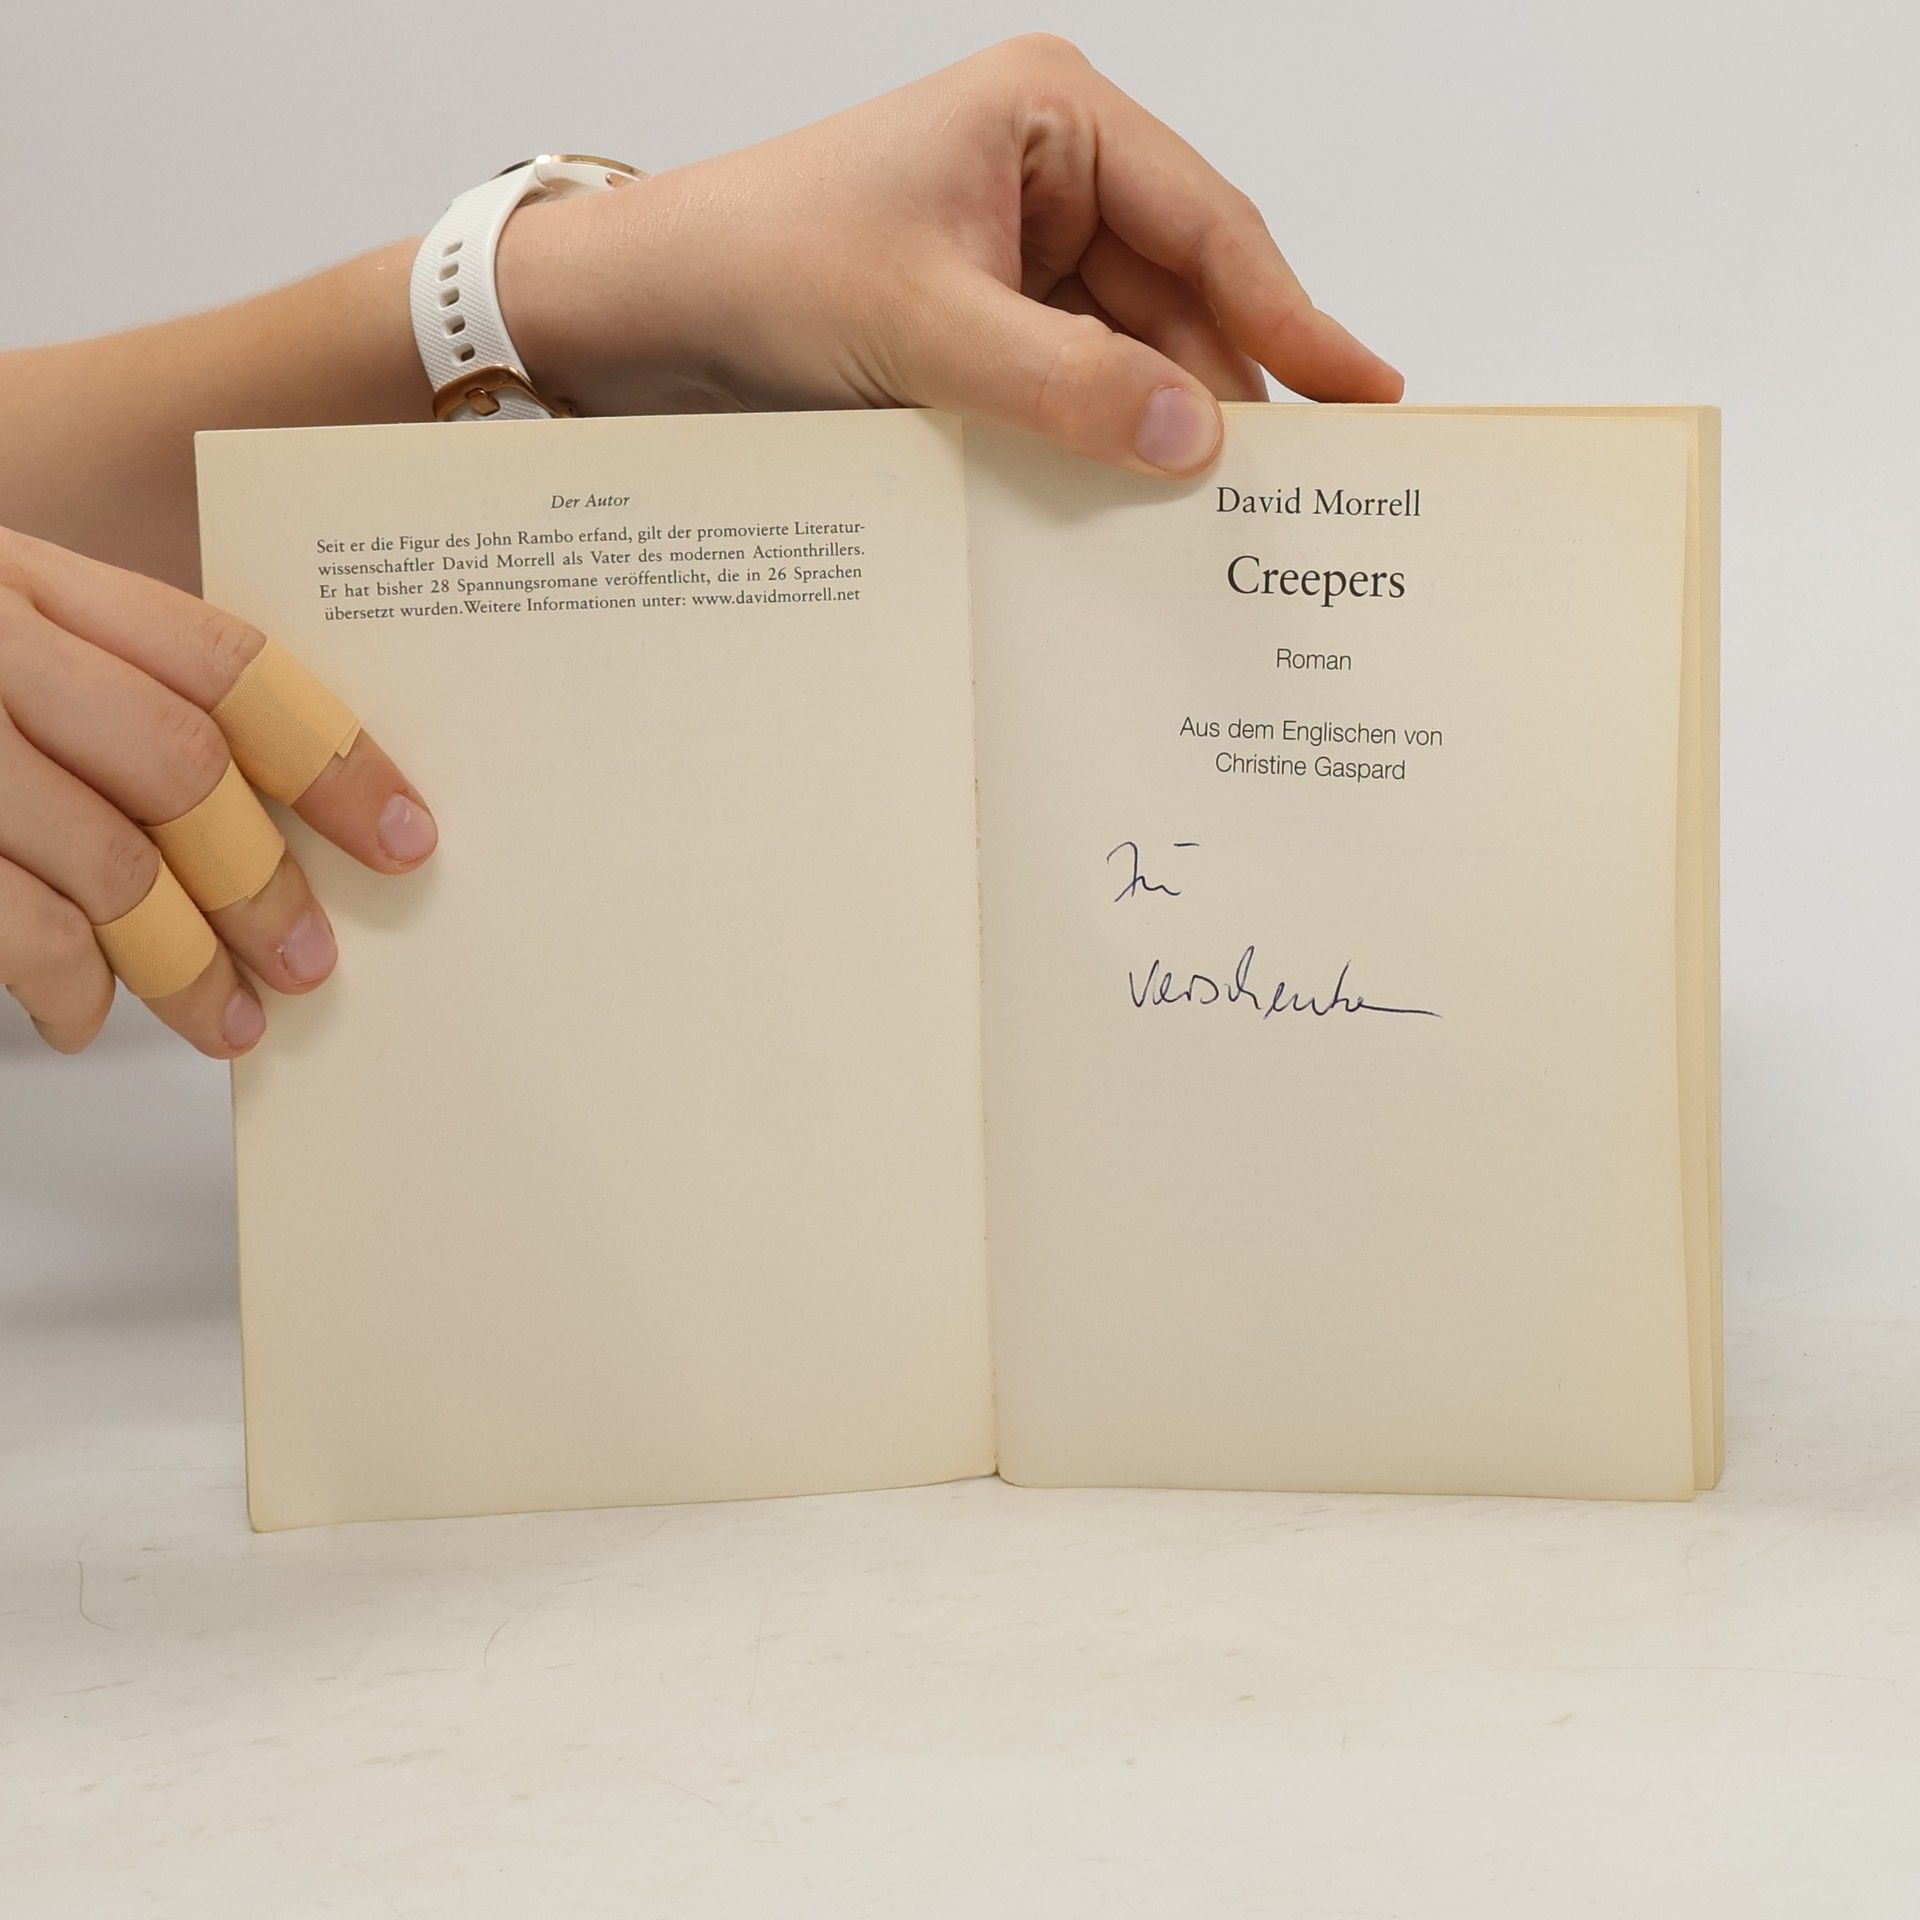 Der Autor
Seit er die Figur des John Rambo erfand, gilt der promovierte Literatur-
wissenschaftler David Morrell als Vater des modernen Actionthrillers.
Er hat bisher 28 Spannungsromane veröffentlicht, die in 26 Sprachen
übersetzt wurden. Weitere Informationen unter: www.davidmorrell.net
David Morrell
Creepers
Roman
Aus dem Englischen von
Christine Gaspard
verschenken